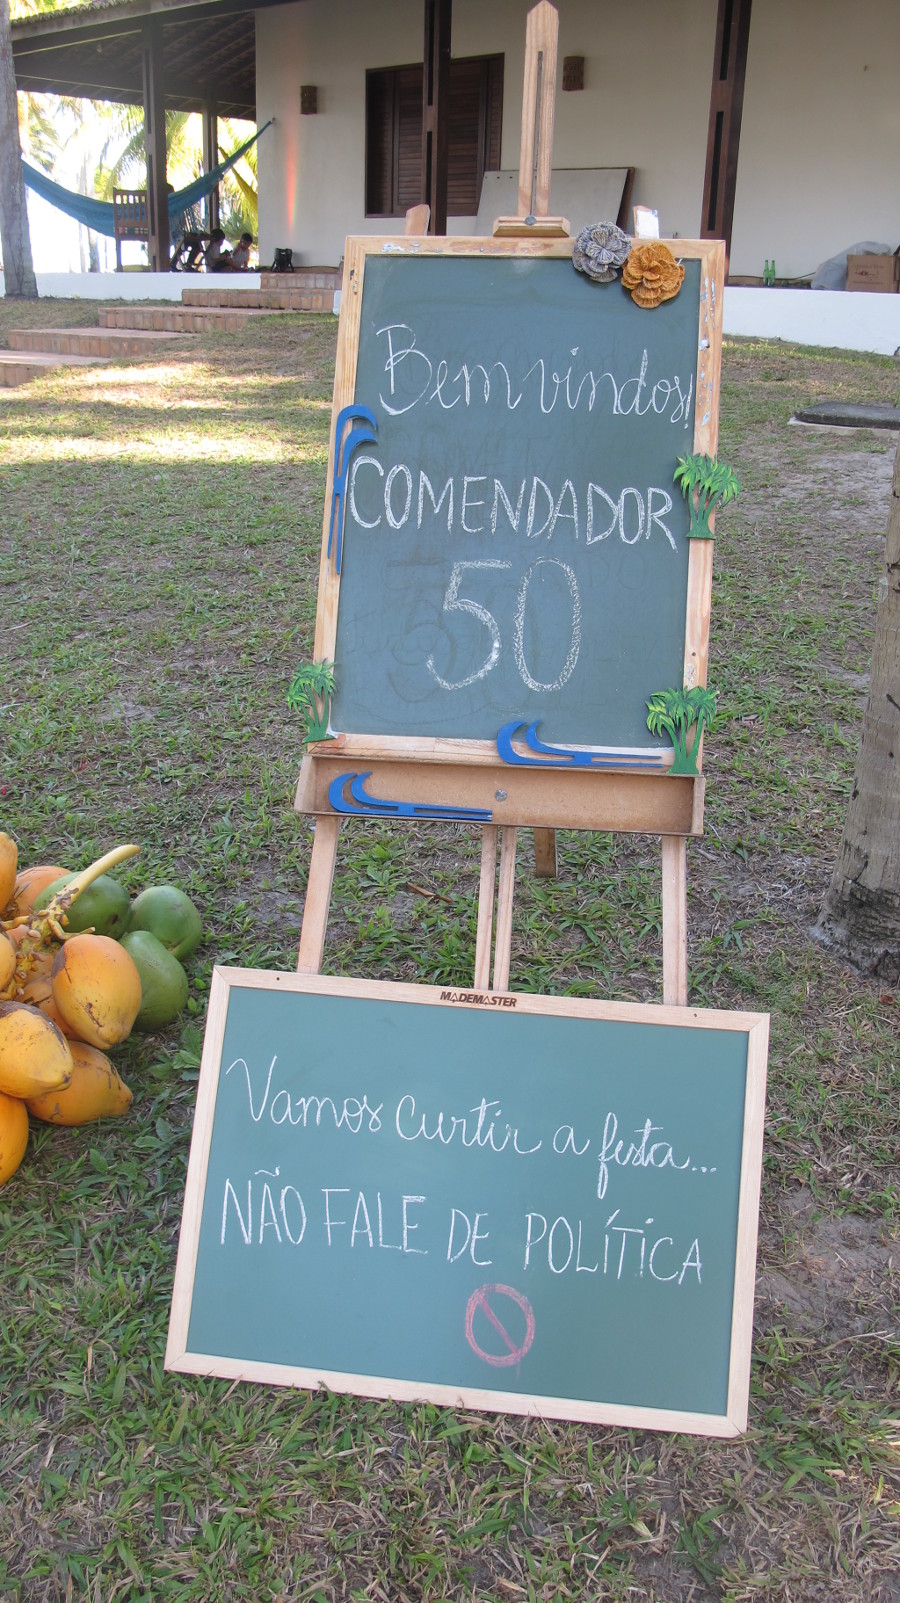 Bem vindos!
COMENDADOR
50
MADEMASTER
Vamos curtir a festa...
NÃO FALE DE POLÍTICA